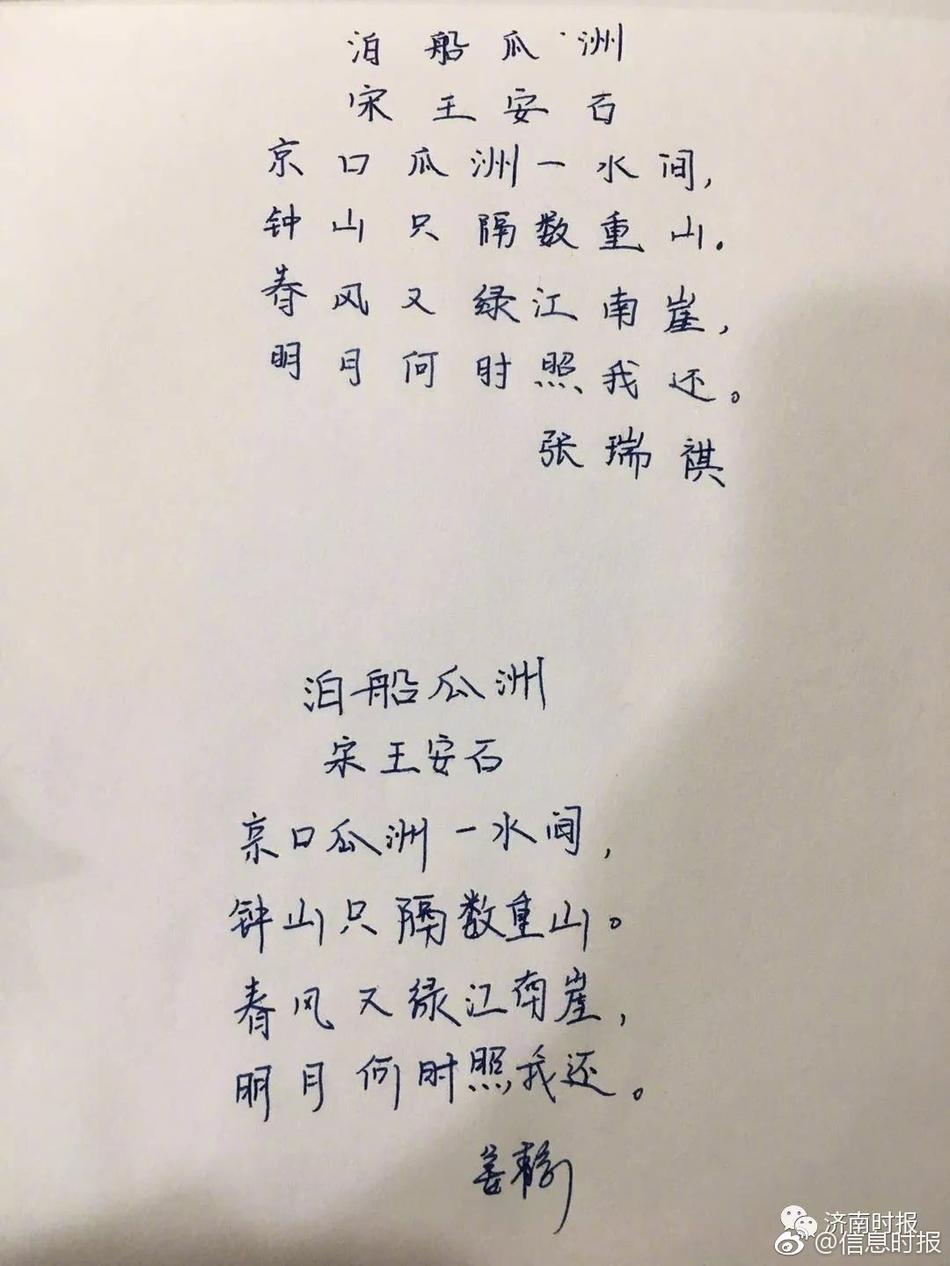 泊船瓜洲
宋王安石
京口瓜洲一水间,
钟山只隔数重山.
春风又绿江南崖,
明月何时照我还。
张瑞祺
泊船瓜洲
宋王安石
京口瓜洲一水间,
钟山只隔数重山。
春风又绿江南崖,
明月何时照我还。
姜
济南时报
@信息时报